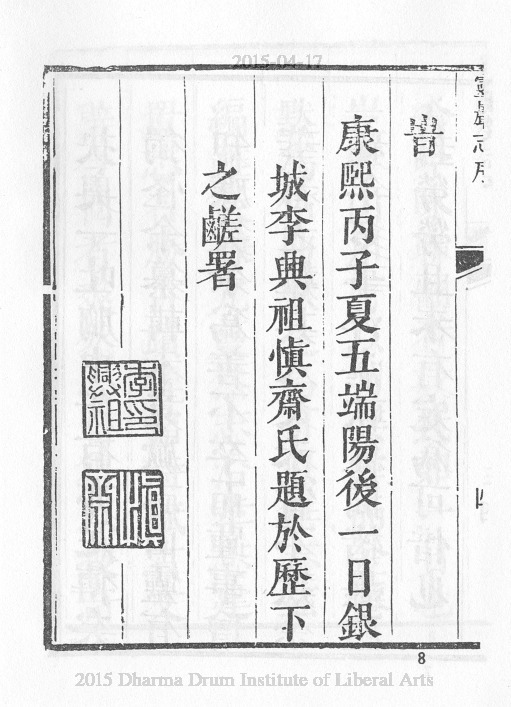 2015-04-17
靈巖志序
旹
康熙丙子夏五端陽後一日銀
城李典祖慎齋氏題於歷下
之鹺署
李印
典祖
慎
齋
四
8
2015 Dharma Drum Institute of Liberal Arts